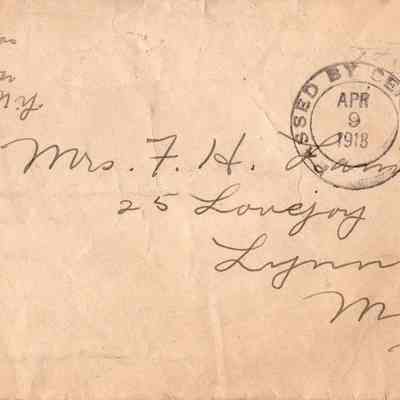 N.Y.
PASSED BY CE
APR
9
1918
Mrs. F. H. Lam
25 Lovejoy
Lynn
M